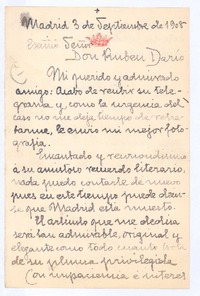 Madrid 3 de Septiembre de 1908
Exmo Señor
Don Ruben Darío
Mi querido y admirado
amigo: Acabo de recibir su tele-
grama y, como la urgencia del
caso no me deja tiempo de retra-
tarme, le envío mi mejor foto-
grafía.
Encantado y
a su amistoso recuerdo literario,
nada puedo contarle de nuevo
pues en este tiempo puede decir-
se que Madrid está muerto.
El artículo que me dedica
será tan admirable, original y
elegante como todo cuanto
de su pluma privilegiada
Con impaciencia é interes